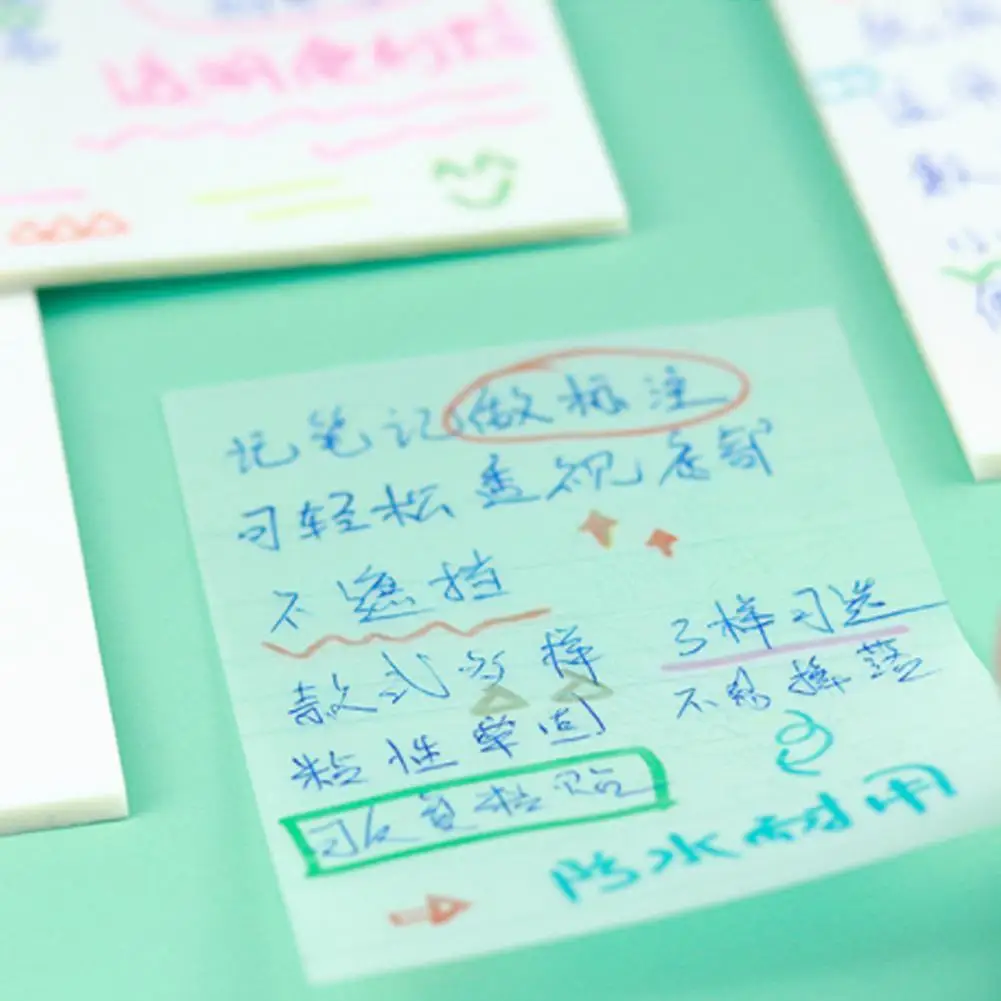 透明便利贴
记笔记做标注
可轻松透视底部
不遮挡
款式多样
3样可选
粘性牢固
不易掉落
可反复粘贴
防水耐用